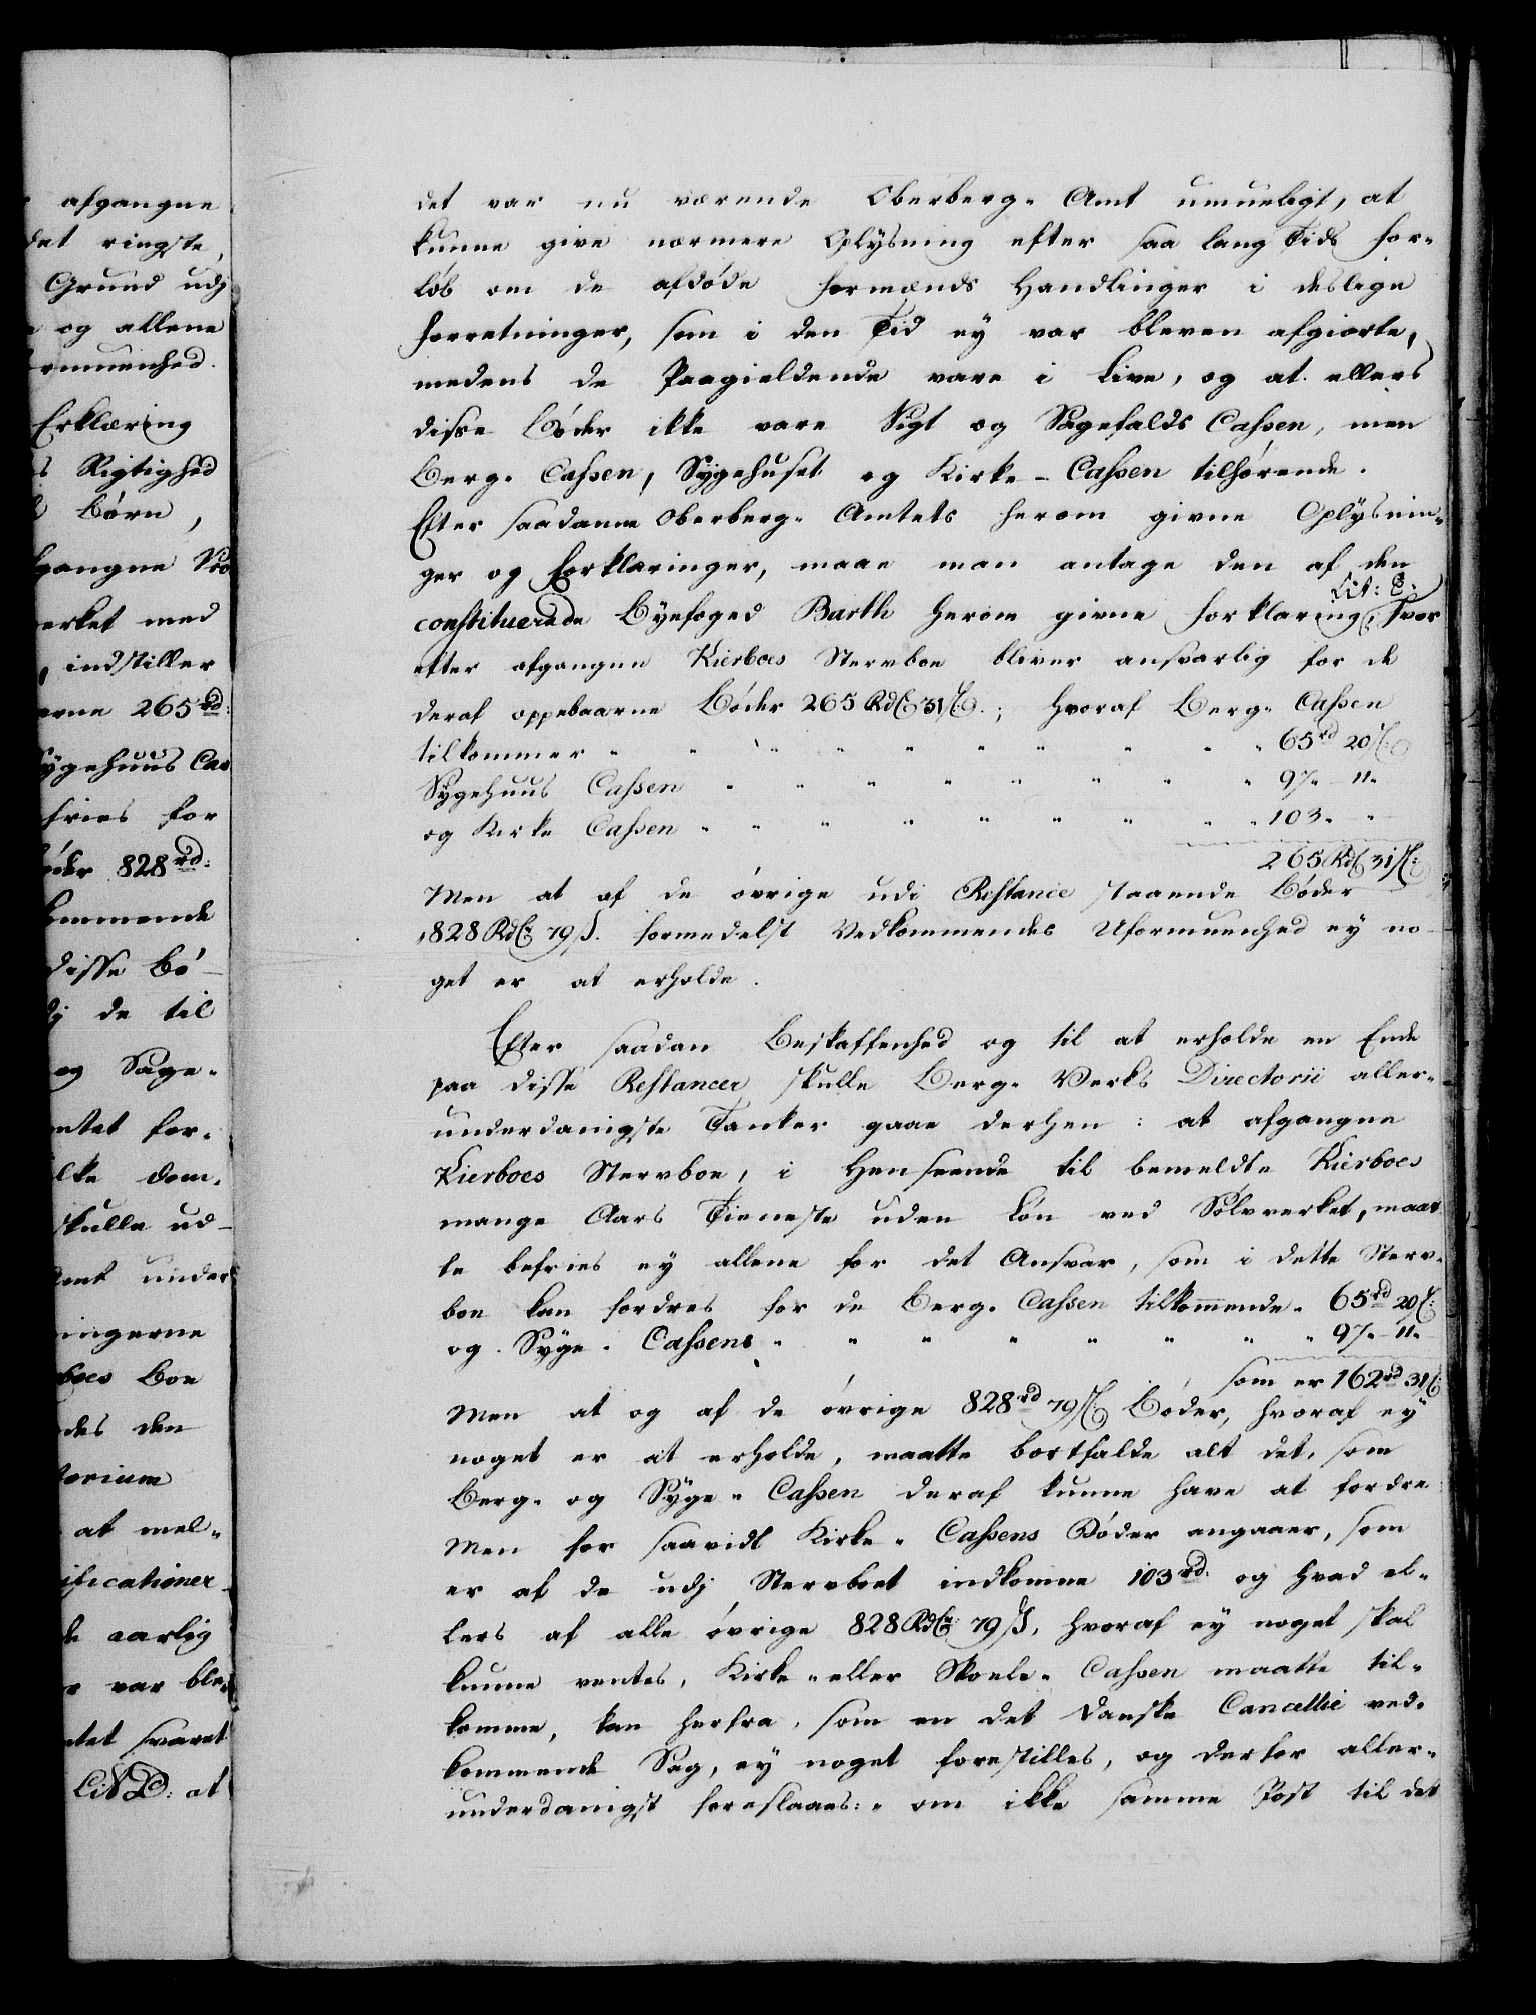 afgangne
det ringste,
Grund udj
og allene
Erklæring
Rigtighed
Børn,
gangne
erket med
indstiller
erne 265 rd:
Sygehuus Cas
fries for
øder 828 rd:
kommende
disse Bø-
de til
og Sage-
mtet for-
ilke dem,
skulle ud-
under
ingerne
boes Boe
des den
torium
at mel-
ificationer
aarlig
var ble-
mtet svaret
Lit D: at
det var nu værende Oberberg- Amt umueligt, at
kunne give nærmere Oplysning efter saa lang Tids For-
løb om de afdøde Formænds Handlinger i deslige
Forretninger, som i den Tid ey var bleven afgiorte,
medens de Paagieldende vare i Live, og at ellers
disse Bøder ikke vare Sigt og Sagefalds Cassen, men
Berg- Cassen, Sygehuset og Kirke- Cassen tilhørende.
Efter saadanne Oberberg- Amtets herom givne Oplysnin-
ger og Forklaringer, maae man antage den af den
constituerede Byefoged Barth herom givne Forklaring, Lit: C: hvor
efter afgangne Kierboes Stervboe bliver ansvarlig for de
deraf oppebaarne Bøder 265 Rd 31 s.; hvoraf Berg- Cassen
tilkommer - - - - - - - - - - 65 rd 20 s:
Sygehuus Cassen - - - - - - - - 97 - 11 -
og Kirke Cassen - - - - - - - - - 103 - -
265 Rd 31 s:
Men at af de øvrige udi Restance staaende Bøder
828 Rd 79 s. formedelst Vedkommendes Uformuenhed ey no-
get er at erholde.
Efter saadan Beskaffenhed og til at erholde en Ende
paa disse Restancer skulle Berg- Verks Directorii aller-
underdanigste Tanker gaae derhen: at afgangne
Kierboes Stervboe, i Henseende til bemeldte Kierboes
mange Aars Tieneste uden Løn ved Sølvverket, maat-
te befries ey allene for det Ansvar, som i dette Sterv-
boe kan fordres for de Berg- Cassen tilkommende - 65 rd 20 s:
og Syge- Cassens - - - - - - - - 97 - 11 -
som er 162 rd 31 s:
Men at og af de øvrige 828 rd 79 s: Bøder, hvoraf ey
noget er at erholde, maatte bortfalde alt det, som
Berg- og Syge- Cassen deraf kunne have at fordre
Men for saavidt Kirke- Cassens Bøder angaaer, som
er af de udj Stervboet indkomne 103 rd. og hvad el-
lers af alle øvrige 828 Rd 79 s, hvoraf ey noget skal
kunne ventes, Kirke- eller Skoele- Cassen maatte til-
komme, kan herfra, som en det Danske Cancellie ved-
kommende Sag, ey noget forestilles, og derfor aller-
underdanigst foreslaaes:- om ikke samme Post til det